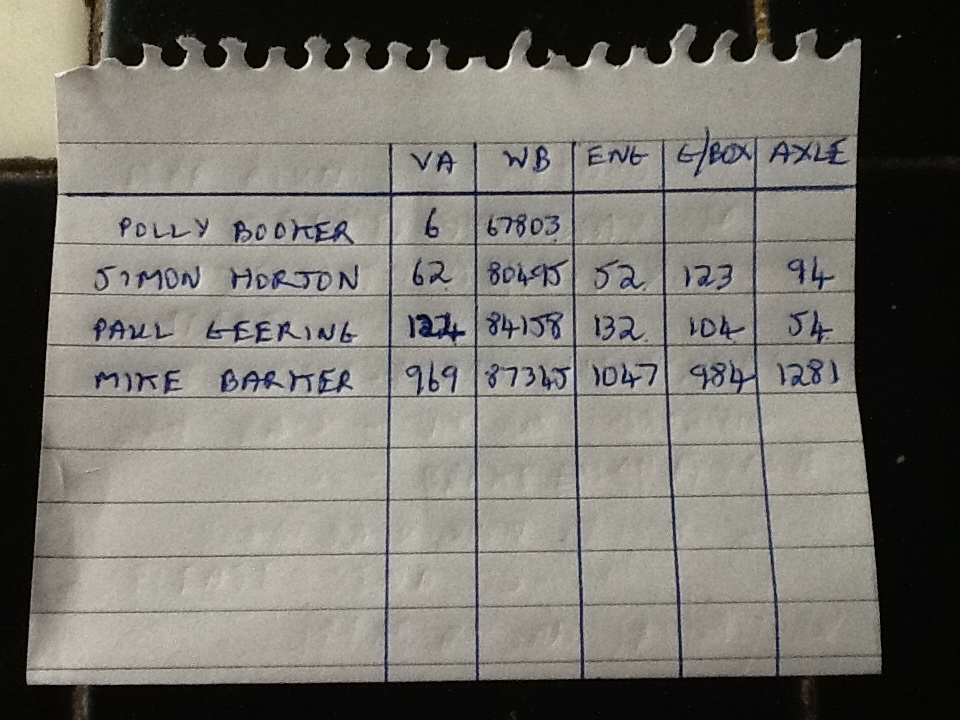 VA WB ENG G/BOX AXLE
POLLY BOOKER 6 67803
SIMON HORTON 62 80495 52 123 94
PAUL GEERING 124 84158 132 104 54
MIKE BARKER 969 87345 1047 984 1281